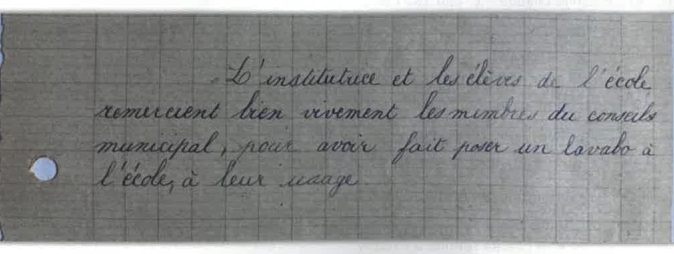 L'institutrice et les élèves de l'école
remercient bien vivement les membres du conseils
municipal, pour avoir fait poser un lavabo à
l'école, à leur usage